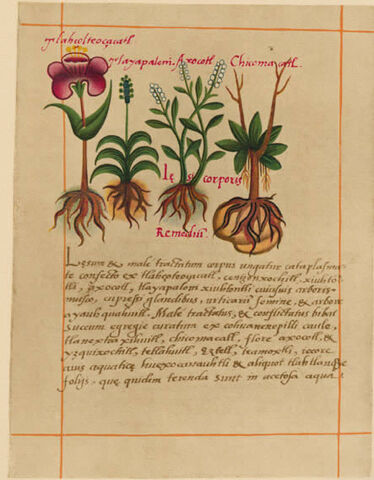 Tlahcolteoçacatl.
Tlayapaloni. Axocotl. Chicomacatl.
Lęsi corporis
Remediũ.
Lęsum & male tractatum corpus ungatur cataplasma
te confecto ex tlahcolteoçacatl, xiuhto
tli, axocotl, tlayapaloni xiuhtontli, cuiusuis arboris
musco, cupressi glandibus, urticarũ semine, & arbore
ayauh quahuitl. Male tractatus, & conflictatus bibat
succum egregie curatum ex cohuanenepilli caule,
tlanextia xihuitl, chicomacatl, flore axocotl, &
yzquixochitl, tetlahuitl, eztetl, teamoxtli, recore
aquaticę huexocanauhtli & aliquot tlatlanquaye
folijs. que quidem terenda sunt in acetosa aqua.